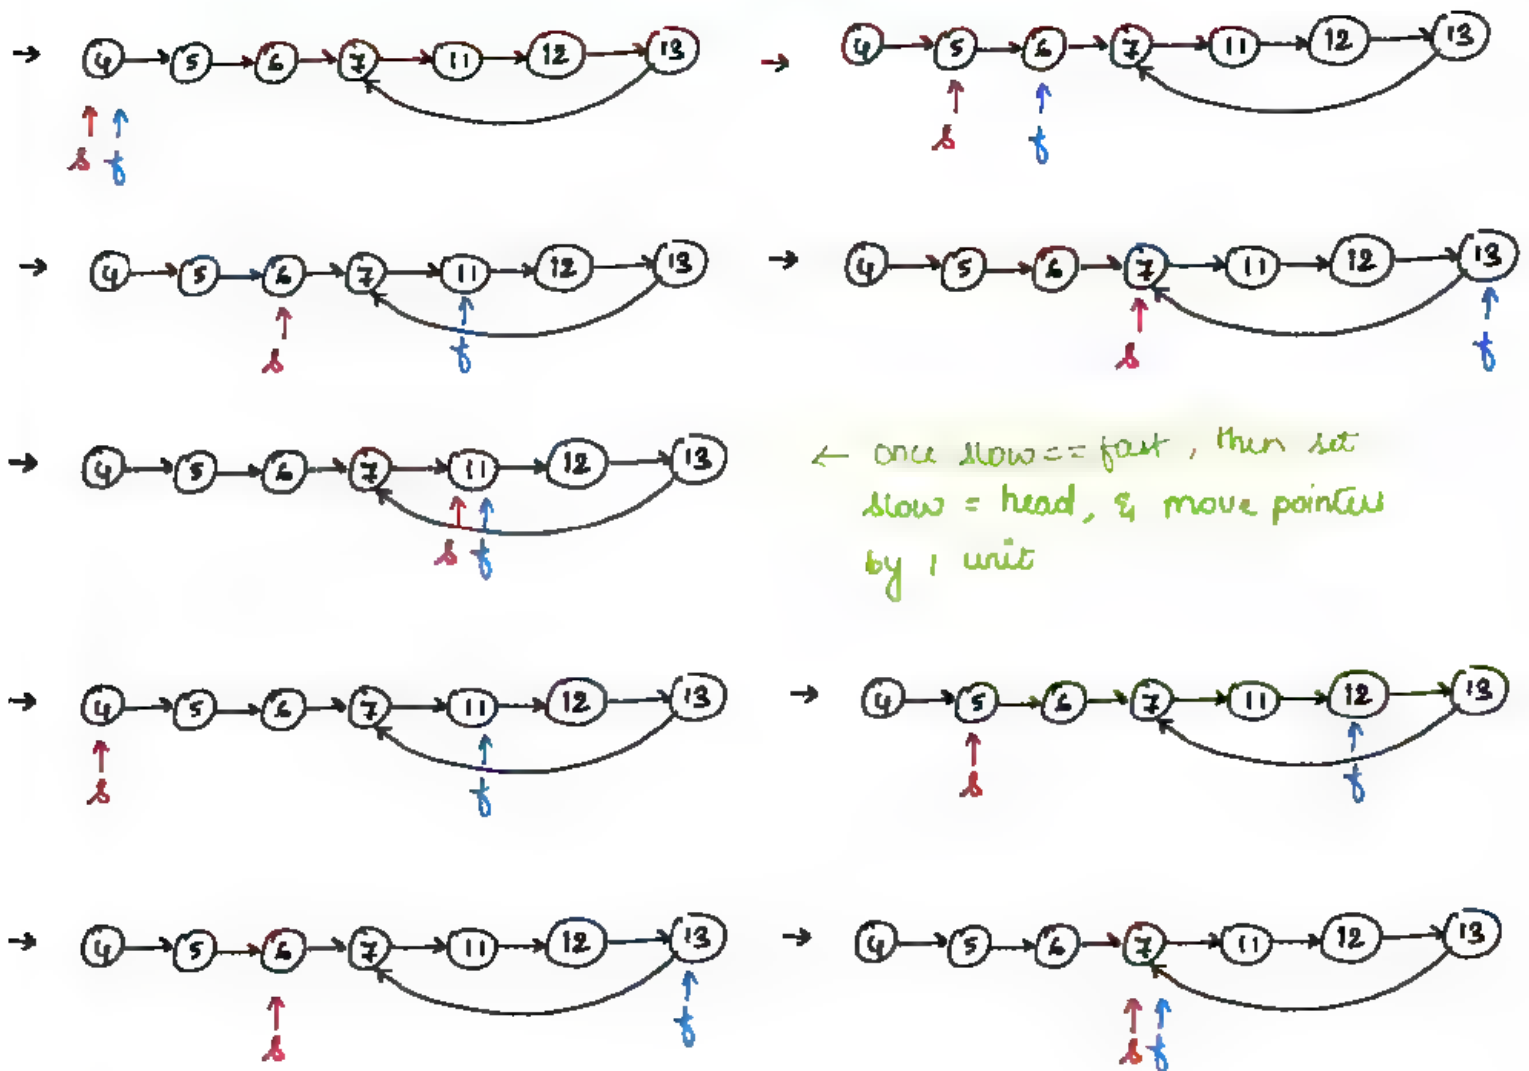 → 4 → 5 → 6 → 7 → 11 → 12 → 13
s f
→ 4 → 5 → 6 → 7 → 11 → 12 → 13
s f
→ 4 → 5 → 6 → 7 → 11 → 12 → 13
s f
→ 4 → 5 → 6 → 7 → 11 → 12 → 13
s f
→ 4 → 5 → 6 → 7 → 11 → 12 → 13
s f
← once slow == fast, then set
slow = head, & move pointers
by 1 unit
→ 4 → 5 → 6 → 7 → 11 → 12 → 13
s f
→ 4 → 5 → 6 → 7 → 11 → 12 → 13
s f
→ 4 → 5 → 6 → 7 → 11 → 12 → 13
s f
→ 4 → 5 → 6 → 7 → 11 → 12 → 13
s f